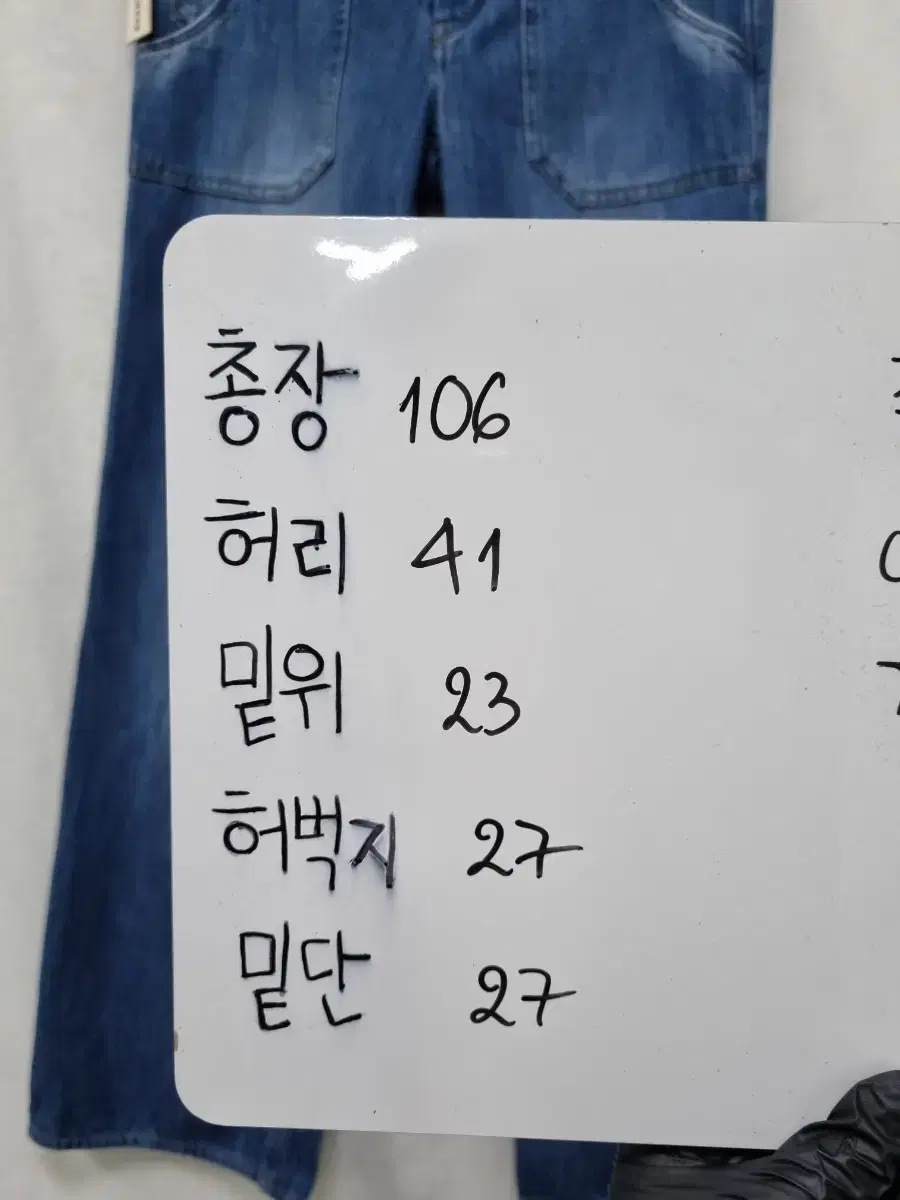 총장 106
허리 41
밑위 23
허벅지 27
밑단 27